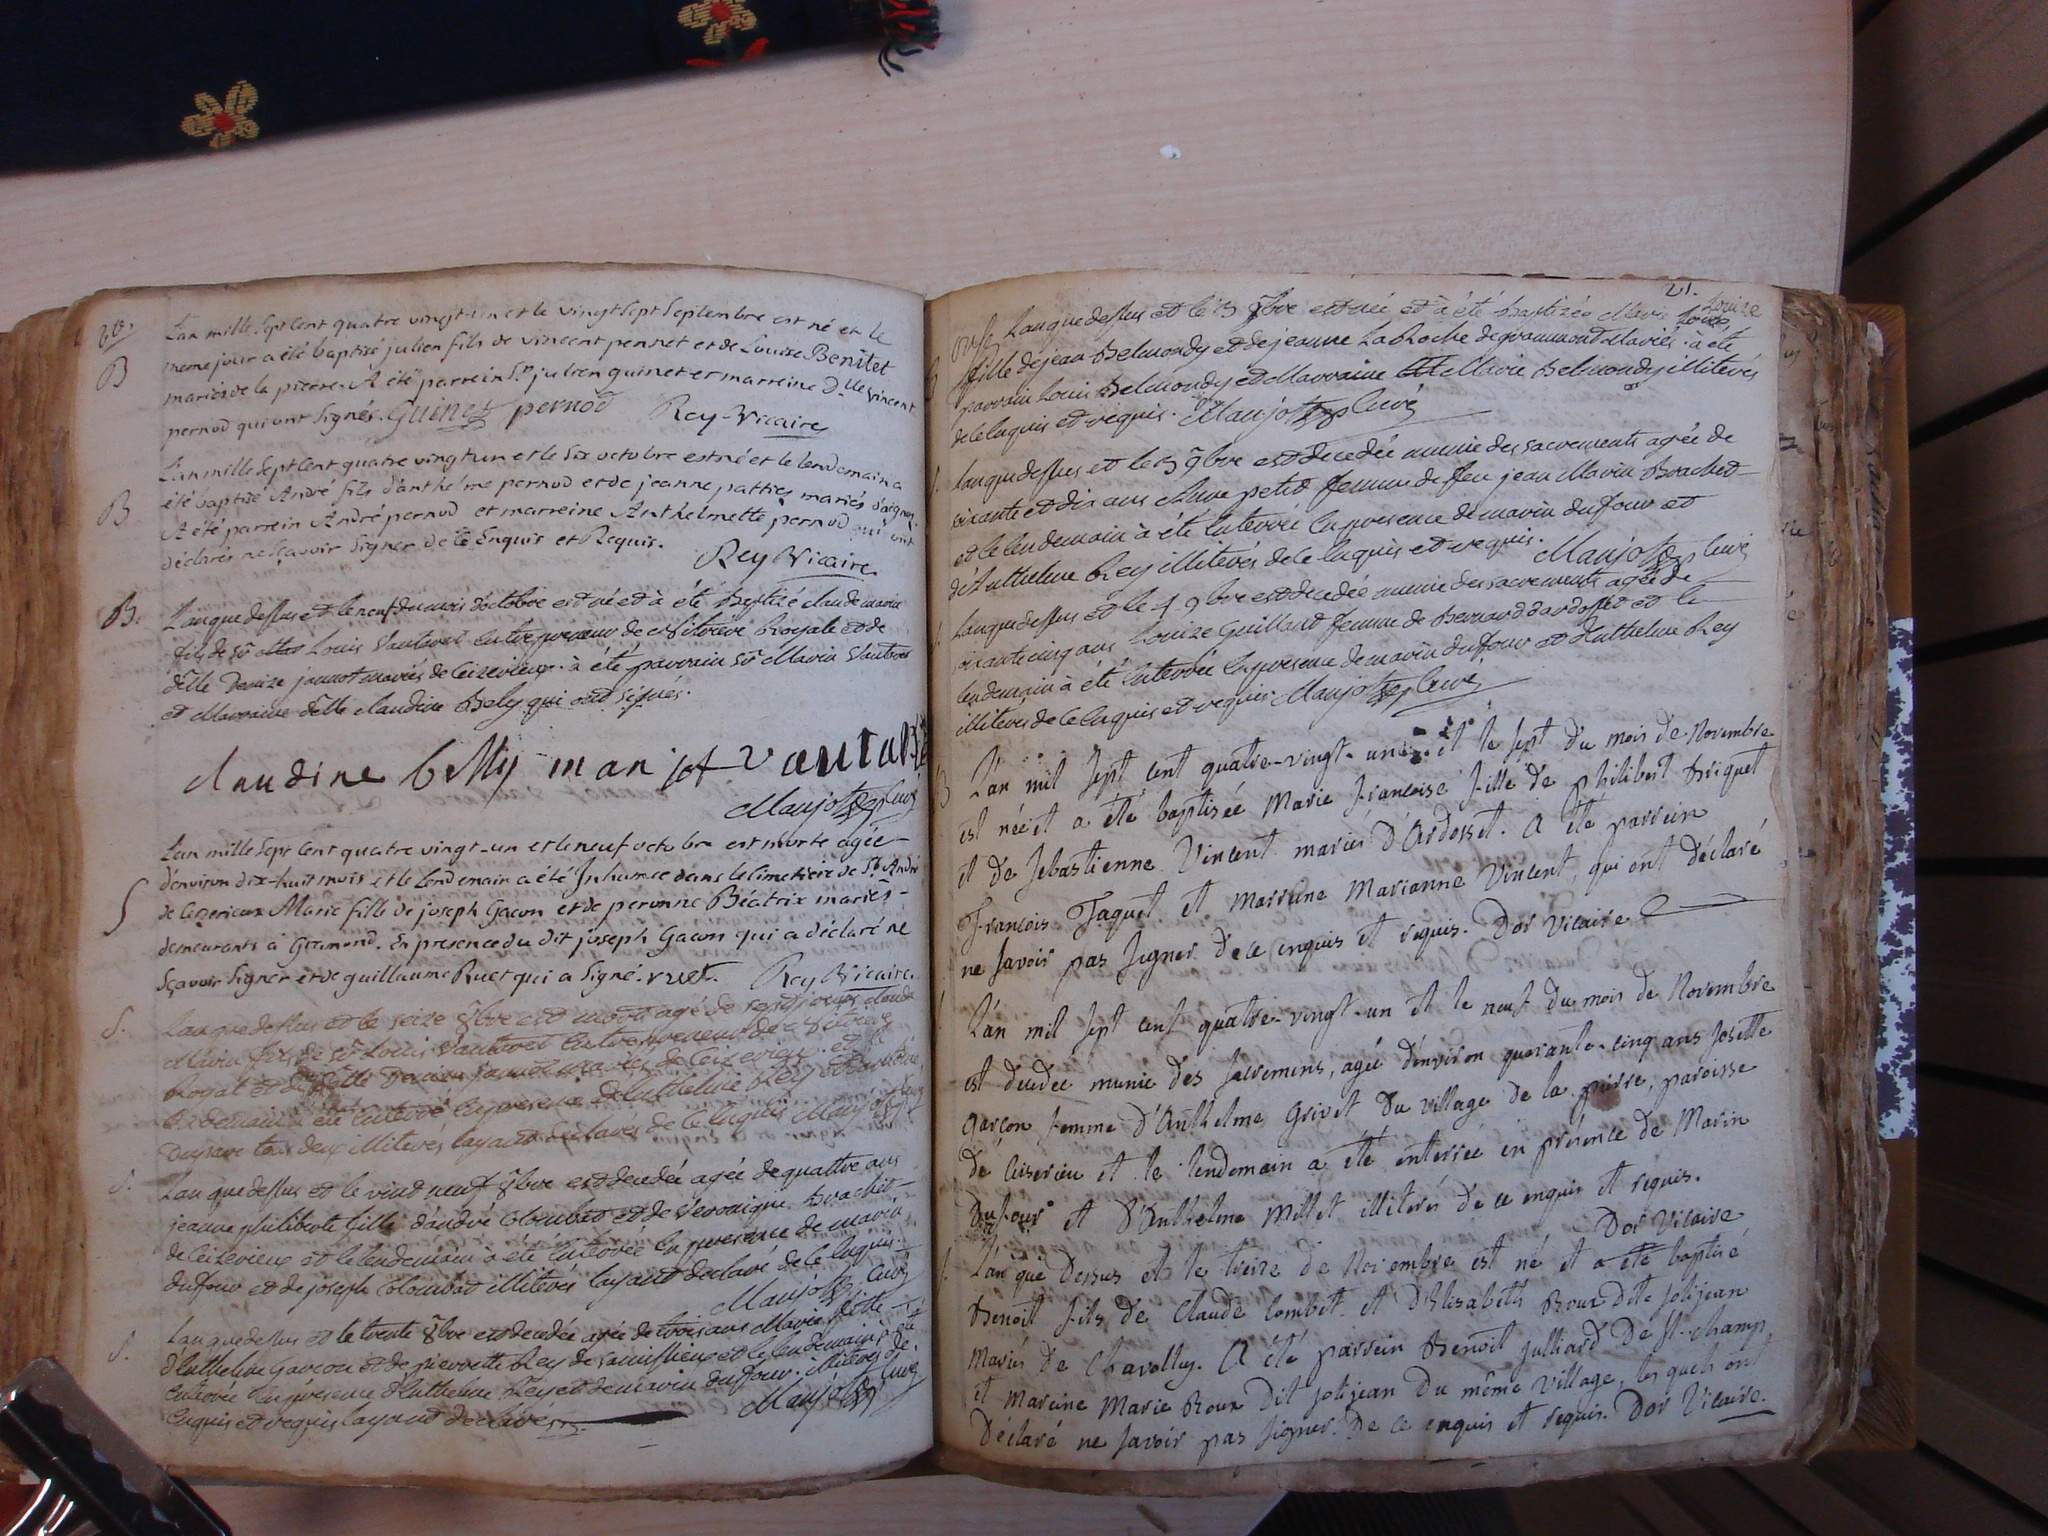 20.
B
L'an mille sept cent quatre vingt-un et le vingt sept septembre est né et le
meme jour a été baptisé julien fils de vincent pernet et de Louise Benitet
mariés de la pierre. A été parrein Sr. julien guinet et marreine Dlle vincent
pernod qui ont signés. Guinet pernod Rey-Vicaire
B
L'an mille sept cent quatre vingt un et le six octobre est né et le lendemain a
été baptisé André fils d'anthelme pernod et de jeanne patties mariés d'aignoz.
A été parrein André pernod et marreine Anthelmette pernod qui ont
déclarés ne sçavoir signer de ce Enquis et Requis.
Rey Vicaire
B.
L'an que dessus et le neuf du mois d'octobre est né et à été Baptizé claude marin
fils de sr Louis Vautaret entrepreneur de Royale et de
delle Denize jannot mariés de Ceizerieux. à été parrain sr Marin Vautaret
et Marraine delle claudine Bely qui ont signés.
claudine belly manjot vautaret
Manjot curé
S
L'an mille sept cent quatre vingt-un et le neuf octobre est morte agée
d'environ dix-huit mois et le Lendemain a été Inhumée dans le Cimetiere de St. André
de Ceizerieux Marie fille de joseph Gacon et de peronne Béatrix mariés
demeurants à Gramond. En presence du dit joseph Gacon qui a déclaré ne
sçavoir signer et de guillaume Ruet qui a signé. ruet. Rey Vicaire.
S.
L'an que dessus et le seize 8bre est mort agé de sept jours claude
Marin fils de sr Louis Vautaret entrepreneur de
Royal et de delle Denize jannot mariés de Ceizerieux. et le
lendemain à été enterré en presence d'anthelme Rey et
tous deux illiterés l'ayant declarés de ce enquis Manjot curé
S.
L'an que dessus et le vint neuf 8bre est decedée agée de quattre ans
jeanne philiberte fille d'andré Colombat et de Véronique Brachet
de Ceizerieux et le lendemain à été enterrée en presence de marin
dufour et de joseph Colombat illiterés l'ayant declaré de ce enquis.
Manjot curé
S.
L'an que dessus et le trente 8bre est decedée agée de trois ans Marie fille
d'anthelme Garcon et de pierrette Rey de et le lendemain à été
enterrée en presence d'anthelme Rey et de marin dufour. illiterés de ce
enquis et requis l'ayant declarés.
Manjot curé
21.
L'an que dessus et le 3 9bre est née et à été baptizée Marie Louize
fille de jean Belmondy et de jeanne La Roche de grammond Mariés. à été
parrain Louis Belmondy et Marraine Marie Belmondy illiterés
de ce enquis et requis. Manjot curé
L'an que dessus et le 3 9bre est decedée munie des sacrements agée de
soixante et dix ans petit femme de feu jean Marin Brachet
et le lendemain à été enterrée en presence de marin dufour et
d'Anthelme Rey illiterés de ce enquis et requis. Manjot curé
L'an que dessus et le 4 9bre est decedée munie des sacrements agée de
soixante cinq ans Louize Guillaud femme de Bernard d'ardosset et le
lendemain à été enterrée en presence de marin dufour et d'anthelme Rey
illiterés de ce enquis et requis. Manjot curé
B
L'an mil sept cent quatre-vingt-un et le sept du mois de Novembre
est née et a été baptisée Marie Françoise fille de philibert Briquet
et de Sebastienne Vincent mariés d'Ardosset. A été parrein
François Jaquet et Marreine Marianne Vincent, qui ont déclaré
ne savoir pas signer de ce enquis et requis. Dor Vicaire
L'an mil sept cent quatre-vingt-un et le neuf du mois de Novembre
est decedée munie des sacremens, agée d'environ quarante-cinq ans Josette
garçon femme d'Anthelme Grivet du village de la pierre, paroisse
de Ceiserieu et le lendemain a été enterrée en présence de Marin
Dufour et d'Anthelme Millet illiterés de ce enquis et requis.
Dor Vicaire
L'an que Dessus et le treize de Novembre est né et a été baptisé
Benoit fils de Claude Combet et d'Elisabeth Roux Dite Jolijean
Mariés de Chavolley. A été parrein Benoit Julliard de St. champ
et Marreine Marie Roux Dit Jolijean du même Village, les quels ont
Déclaré ne savoir pas signer. De ce enquis et requis. Dor Vicaire.